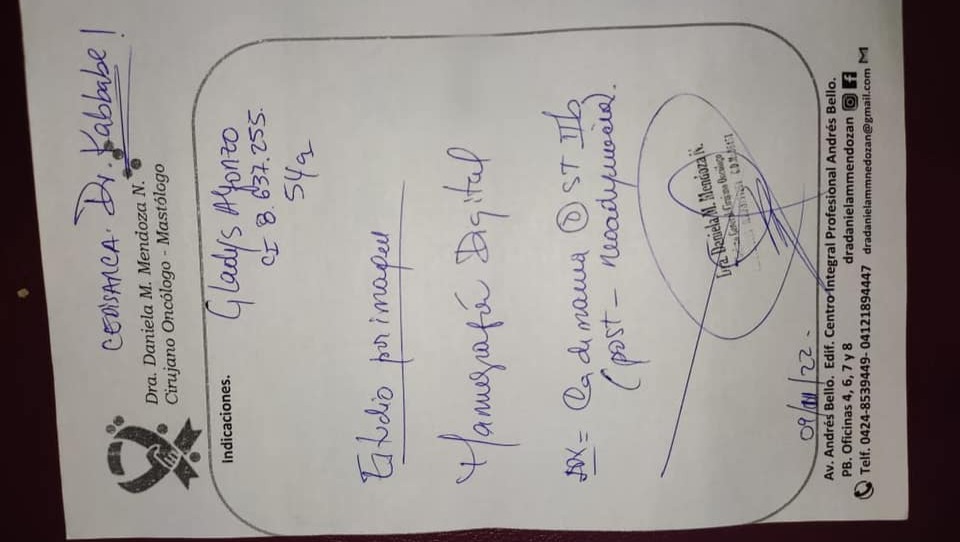 CEDISAMCA. Dr. Kabbabe!
Dra. Daniela M. Mendoza N.
Cirujano Oncólogo - Mastólogo
Indicaciones.
Gladys Alfonzo
CI 8.637.255.
54a
Estudio por imagen
Mamografía Digital
DX = Ca de mama D ST IIb
(post - neoadyuvancia).
Dra. Daniela M. Mendoza N.
09/ /22.
Av. Andrés Bello. Edif. Centro Integral Profesional Andrés Bello.
PB. Oficinas 4, 6, 7 y 8 dradanielammendozan
Telf. 0424-8539449- 04121894447 dradanielammnedozan@gmail.com